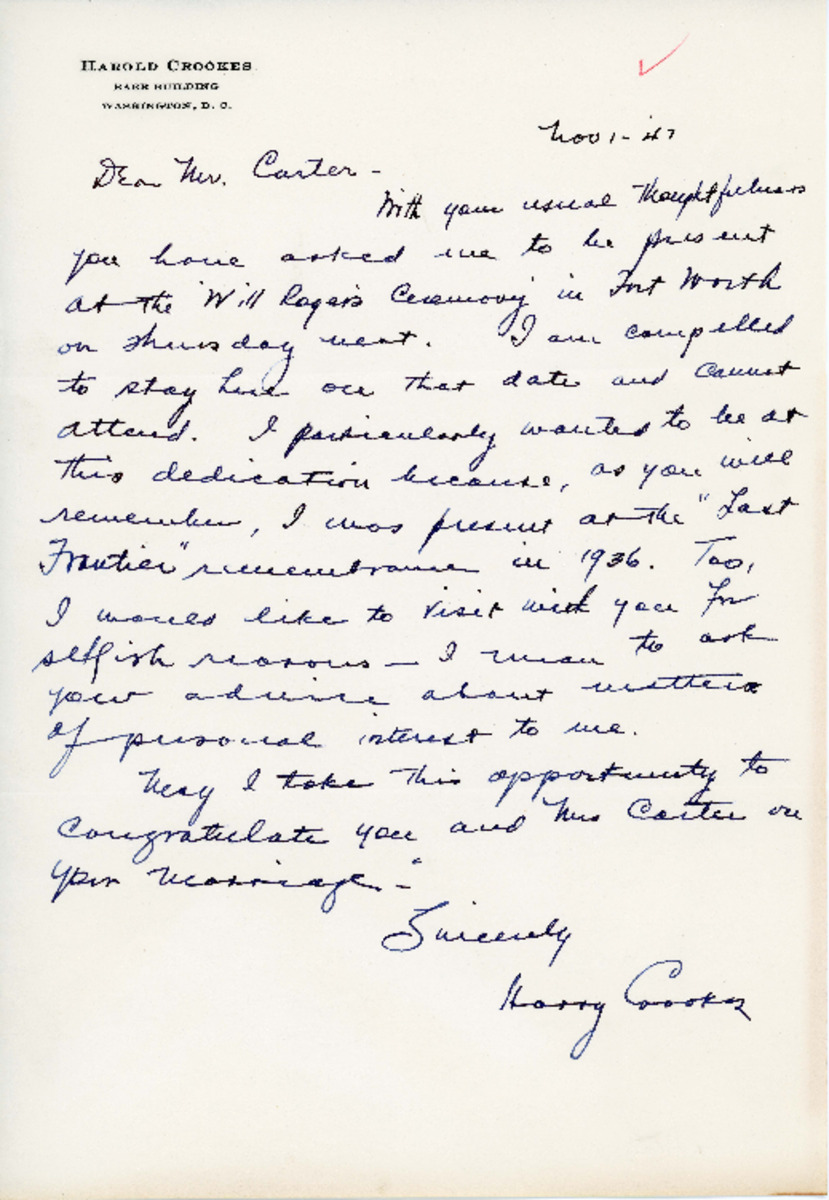 HAROLD CROOKES
BARR BUILDING
WASHINGTON, D. C.
Nov 1-47
Dear Mr. Carter-
With your usual thoughtfulness
you have asked me to be present
at the 'Will Rogers Ceremony' in Fort Worth
on Thursday next. I am compelled
to stay here on that date and cannot
attend. I particularly wanted to be at
this dedication because, as you will
remember, I was present at the "Last
Frontier" remembrance in 1936. Too,
I would like to visit with you for
selfish reasons - I mean to ask
your advice about matters
of personal interest to me.
May I take this opportunity to
congratulate you and Mrs Carter on
your marriage.-
Sincerely
Harry Crookes